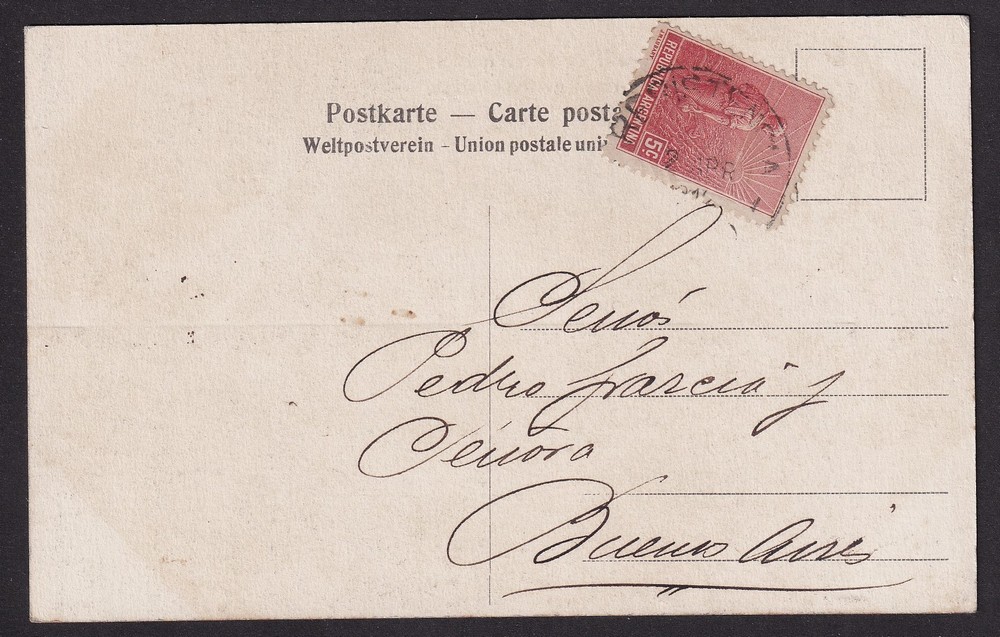 Postkarte — Carte posta
Weltpostverein - Union postale uni
REPUBLICA ARGENTINA
5c
APR
Señor
Pedro Garcia y
Señora
Buenos Aires